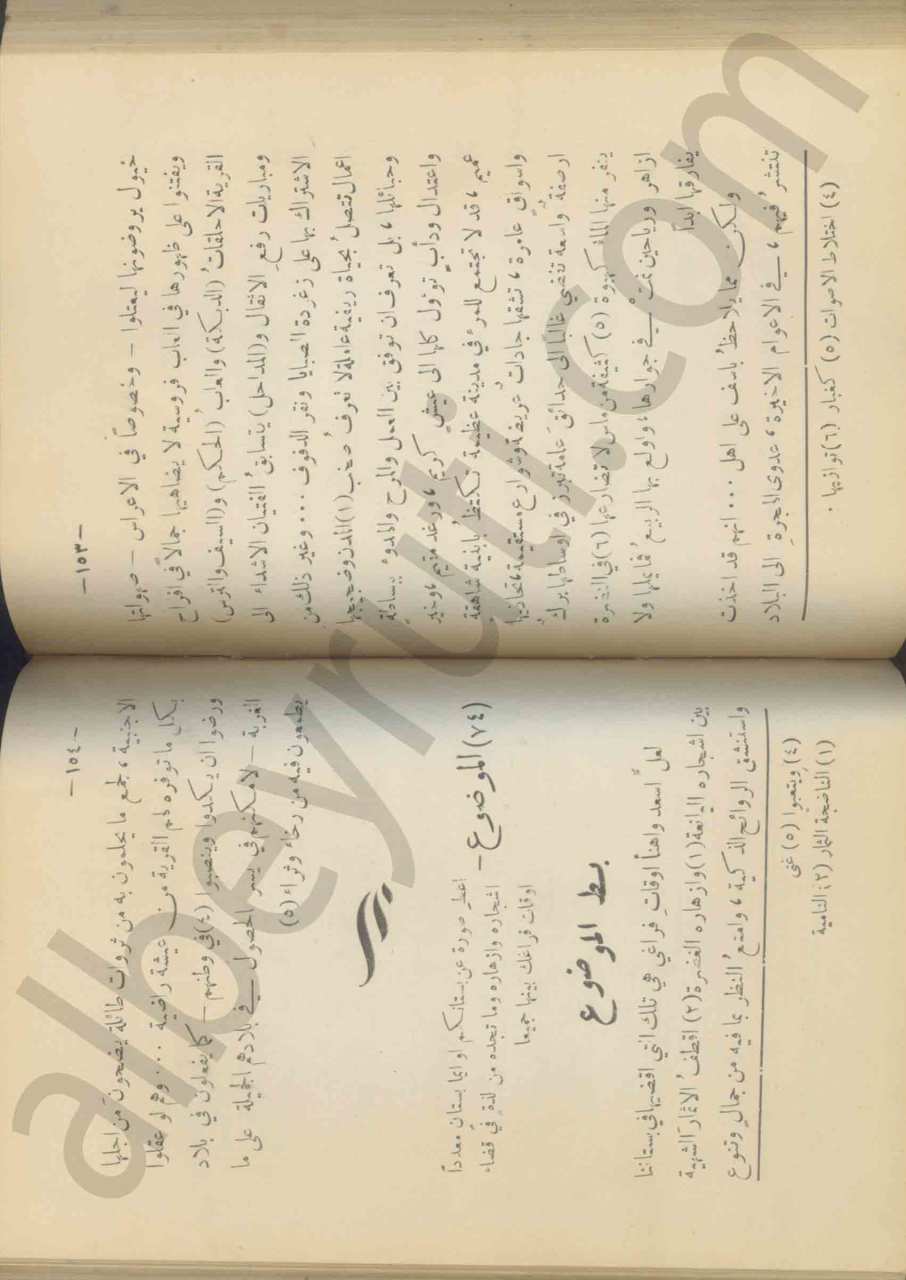 -١٥٣-
خيول يروضونها ليعتلوا - وخصوصاً في الاعراس - صهواتها
ويفتنوا على ظهورها في العاب فروسية لا يضاهيها جمالاً في افراح
القرية الا حلقات (الدبكة) والعاب (الحكم) و(السيف والترس)
ومباريات رفع الاثقال و(المداحل) يتسابق الفتيان الاشداء الى
الاشتراك بها على زغردة الصبايا ونقر الدفوف ... وغير ذلك من
اعمال تتصل بحياة ريفية لا تعرف صخب (١) المدن وضجيجها
وحبائلها، بل تعرف ان توفق بين العمل والمرح والهدوء ببساطة
واعتدال ودأب تؤول كلها الى عيش كريم، ورغد مقيم، وخير
عميم، قد لا تجتمع للمرء في مدينة عظيمة تكتظ بابنية شاهقة
واسواق عامرة، تشقها جادات عريضة وشوارع مستقيمة، تحاذيها
ارصفة واسعة تفضي غالباً الى حدائق عامة تبرز في اوساطها برك
ينفر منها الماء كهبوة (٥) كثيفة من ماس لا تضارعها (٦) في النضرة
ازاهر ورياحين نمت في جوارها، واولع بها الربيع فما يملها ولا
يفارقها ابداً
ولكن مما يلاحظ باسف على اهل ... انهم قد اخذت
تنتشر فيهم، في الاعوام الاخيرة، عدوى الهجرة الى البلاد
(٤) اختلاط الاصوات (٥) كغبار (٦) توازيها.
-١٥٤-
الاجنبية، لجمع ما يحلمون به من ثروات طائلة يضحون من اجلها
بكل ما توفره لهم القرية من عيشة راضية ... وهم لو عقلوا
ورضوا ان يكدوا وينصبوا (٤) في وطنهم - كما يفعلون في بلاد
الغربة - لامكنهم في يسر الحصول في بلادهم الجميلة على ما
يطمعون فيه من رخاء وثراء (٥)
(٧٤) الموضوع -
اعط صورة عن بستانكم او ايما بستان معدداً
اشجاره وازهاره وما تجده من لذة في قضاء
اوقات فراغك بينها جميعاً
بسط الموضوع
لعل أسعد واهنأ اوقات فراغي هي تلك التي اقضيها في بستاننا
بين اشجاره اليانعة (١) وازهاره النضرة (٢) اقطف الاثمار الشهية
واستنشق الروائح الذكية، وامتع النظر بما فيه من جمال وتنوع
(٤) ويتعبوا (٥) غنى
(١) الناضجة الثمار (٢) النامية
albeyruti.com